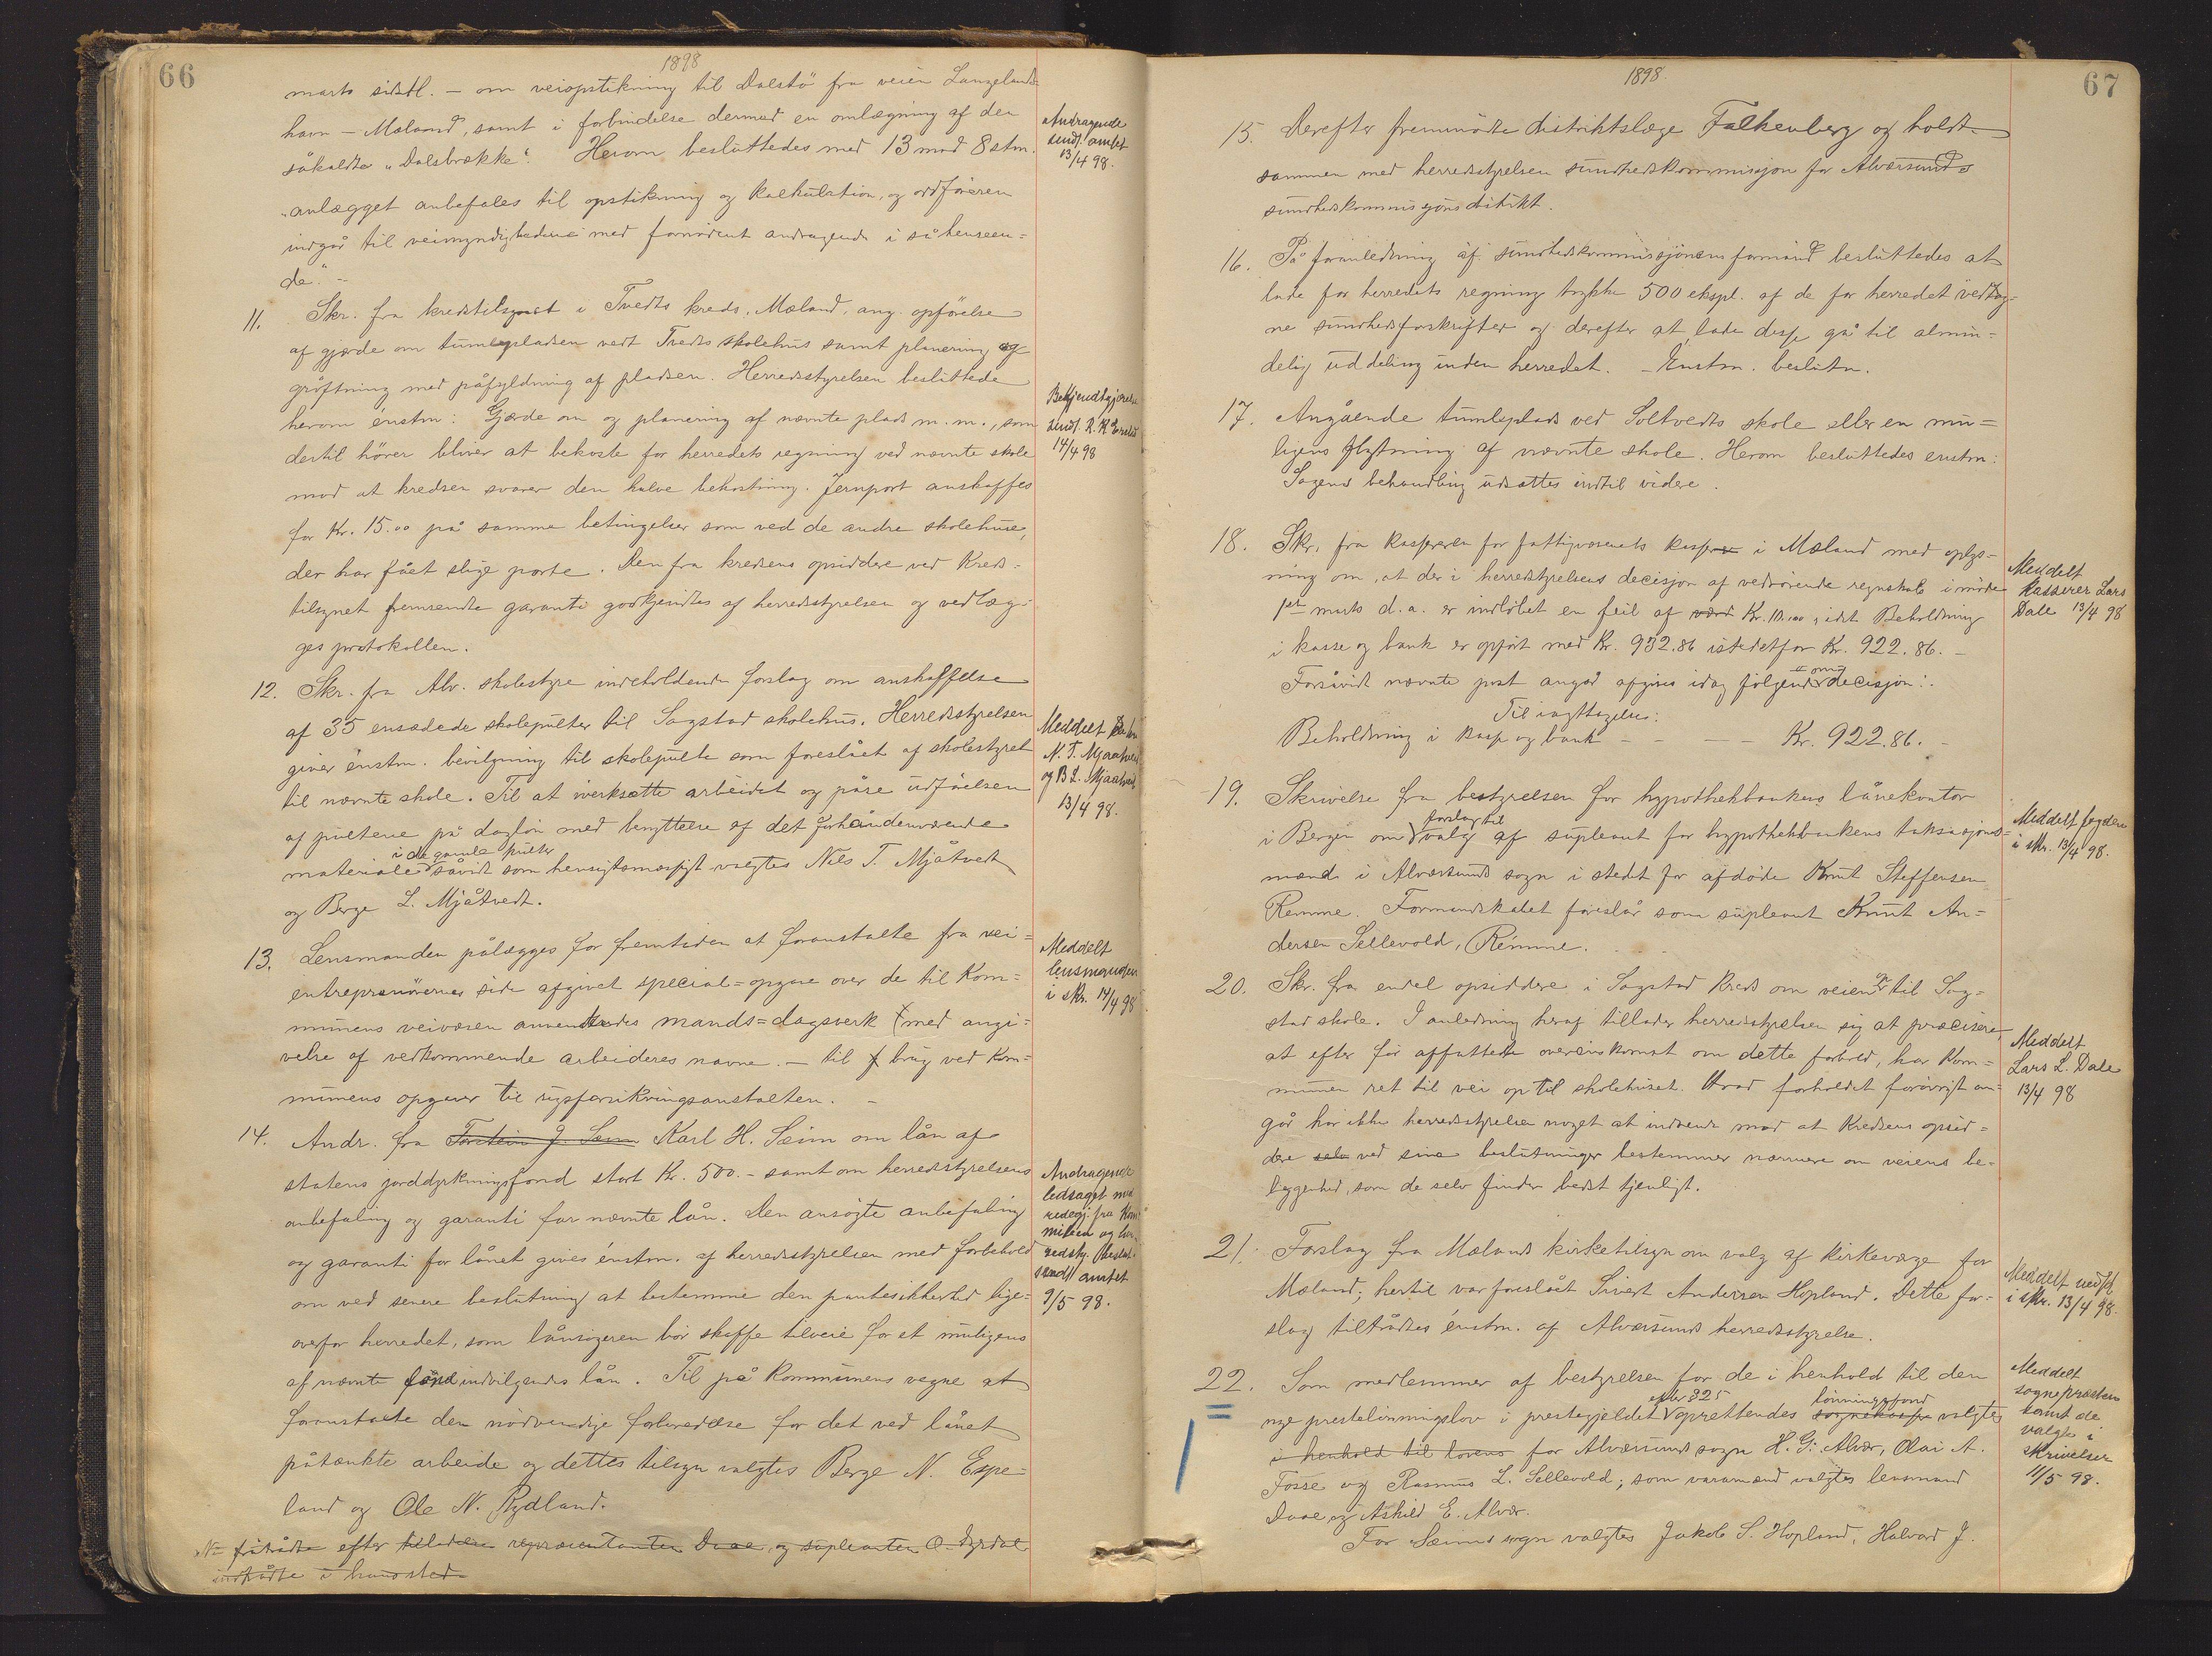 66
1898
marts sidstl. – om veiopstikning til Dalstö fra veien Langelands-
havn – Mæland, samt i forbindelse dermed en omlægning af den
såkaldte „Dalsbrække“. Herom besluttedes med 13 mod 8 stm.
„anlægget anbefales til opstikning og kalkulation, og ordföreren
indgår til veimyndighederne med fornödent andragende i så henseen=
de“. –
Andragende
sendt amtet
13/4 98.
11. Skr. fra kredstilsynet i Tvedts kreds, Mæland, ang. opförelse
af gjærde om tumlepladsen vedt Tvedts skolehus samt planering og
gröftning med påfyldning af pladsen. Herredsstyrelsen besluttede
herom énstm: Gjærde om og planering af nævnte plads m. m., som
dertil hörer bliver at bekoste for herredets regning ved nævnte skole
mod at kredsen svarer den halve bekostning. Jernport anskaffes
for Kr. 15.00 på samme betingelser som ved de andre skolehuse,
der har fået slige porte. Den fra kredsens opsiddere ved Kreds=
tilsynet fremsendte garanti godkjendtes af herredsstyrelsen og vedlæg=
ges protokollen.
Bekjendtgjörelse
sendt R. K.
14/4 98
12. Skr. fra Alv. skolestyre indeholdende forslag om anskaffelse
af 35 ensædede skolepulter til Sagstad skolehus. Herredsstyrelsen
giver énstm. bevilgning til skolepulte som foreslået af skolestyret
til nævnte skole. Til at iverksætte arbeidet og påse udförelsen
af pulterne på daglön med benyttelse af det forhåndenværende
i de gamle pulter
materiale såvidt som hensigtsmæssigt valgtes Nils T. Mjåtvedt
og Berge L. Mjåtvedt.
Meddelt
N. T. Mjaatvedt
og B L. Mjaatvedt
13/4 98.
13. Lensmanden pålægges for fremtiden at foranstalte fra vei=
entreprenörernes side afgivet special=opgave over de til Kom=
munens veivæsen anvendtes mands=dagsverk (med angi=
velse af vedkommende arbeideres navne. – til brug ved Kom=
munens opgaver til rigsforsikringsanstalten. –
Meddelt
lensmanden
i skr. 14/4 98
14. Andr. fra Torstein J. Seim Karl H. Seim om lån af
statens jorddyrkningsfond stort Kr. 500.- samt om herredsstyrelsens
anbefaling og garanti for nævnte lån. Den ansögte anbefaling
og garanti for lånet gives énstm. af herredsstyrelsen med forbehold
om ved senere beslutning at bestemme den pantesikkerhed lige=
overfor herredet, som lånsögeren bör skaffe tilveie for et muligens
af nævnte fond indvilgendes lån. Til på kommunens vegne at
foranstalte den nödvendige forberedelse for det ved lånet
påtænkte arbeide og dettes tilsyn valgtes Berge N. Espe=
land og Ole N. Rydland.
Andragende
ledsaget med
redegj. fra Kom
miteen og her
redsst. beslut.
sendt amtet
9/5 98.
fratrådte efter tilladelse repræsentanten Daae og supleanten O. Dyrdal
indtrådte i hans sted
67
1898.
15. Derefter fremmödte distriktslæge Falkenberg og holdt
sammen med herredsstyrelsen sundhedskommissjon for Alversunds
sundhedskommissjons distrikt.
16. På foranledning af sundhedskommissjonens formand besluttedes at
lade for herredets regning trykke 500 ekspl. af de for herredet vedtag=
ne sundhedsforskrifter og derefter at lade disse gå til almin=
delig uddeling inden herredet. – Enstm. beslutn.
17. Angående tumleplads ved Soltvedts skole eller en mu=
ligens flytning af nævnte skole. Herom besluttedes enstm:
Sagens behandling udsættes indtil videre.
18. Skr. fra kassereren for fattigvæsenets kasse i Mæland med oplys=
ning om, at der i herredsstyrelsens decisjon af vedrörende regnskab i möde
1ste marts d.a. er indlöbet en feil af værd Kr. 10.00, idet Beholdning
i kasse og bank er opfört med Kr. 932.86 istedetfor Kr. 922.86. –
Forsåvidt nævnte post angår afgives idag fölgende decisjon:
Til iagttagelse:
Beholdning i kasse og bank – – – – Kr. 922.86. –
Meddelt
Kasserer Lars
Dale 13/4 98
19. Skrivelse fra bestyrelsen for hypothekbankens lånekontor
forslag til
i Bergen om valg af supleant for hypothekbankens taksasjons=
mænd i Alversunds sogn i stedet for afdöde Knut Steffensen
Remme. Formandskabet foreslår som supleant Knut An=
dersen Sellevold, Remme.
Meddelt fogden
i skr. 13/4 98.
20. Skr. fra endel opsiddere i Sagstad kreds om veien til Sag=
stad skole. I anledning heraf tillader herredsstyrelsen sig at præcisere,
at efter för affattede overenskomst om dette forhold, har Kom=
munen ret til vei op til skolehuset. Hvad forholdet forövrigt an=
går har ikke herredsstyrelsen noget at indvende mod at Kredsens opsid=
dere selv ved sine beslutninger bestemmer nærmere om veiens be=
liggenhed, som de selv finder bedst tjenligt.
Meddelt
Lars L. Dale
13/4 98
21. Forslag fra Mælands kirketilsyn om valg af kirkeværge for
Mæland; hertil var foreslået Sivert Andersen Hopland. Dette for=
slag tiltrådtes énstm. af Alversunds herredsstyrelse.
Meddelt vedk.
i skr. 13/4 98.
22. Som medlemmer af bestyrelsen for de i henhold til den
nye prestelönningslov i prestegjeldet oprettendes sognekasse lönningsfond valgtes
i henhold til lovens for Alversunds sogn H. G. Alver, Olai A.
Fosse og Rasmus L. Sellevold; som varamænd valgtes lensmand
Daae og Askild E. Alver.
For Seims sogn valgtes Jakob S. Hopland, Halvard J.
Meddelt
sognepresten
samt de
valgte i
skrivelser
11/5 98.